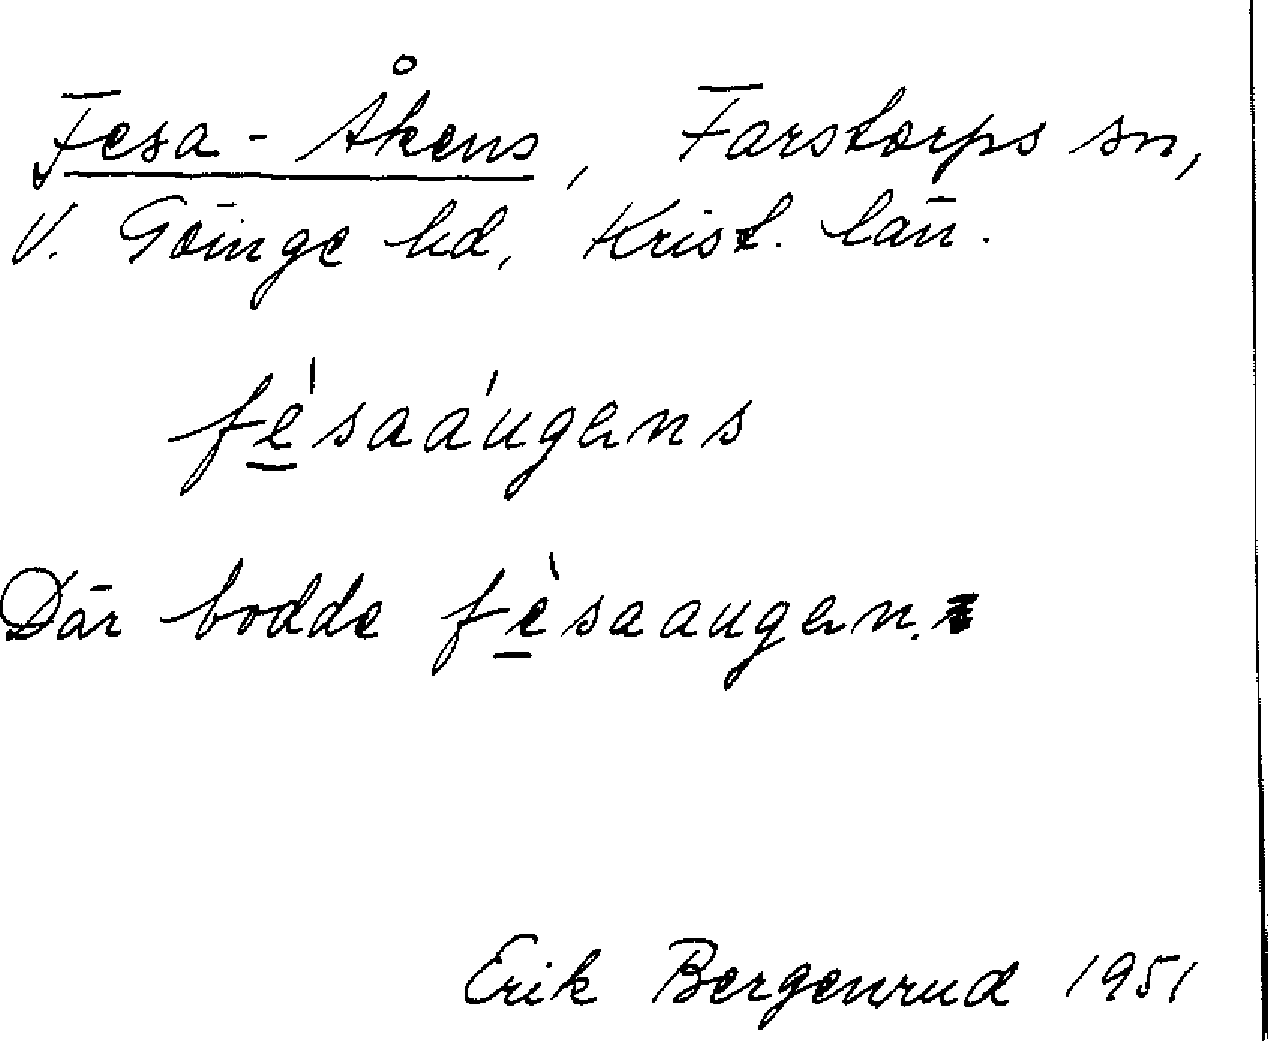 Fesa-Åkens, Farstorps sn,
V. Göinge hd, Krist. län.
fe̲̍saa̍ugens
Där bodde fè̲saaugen.
Erik Bergenrud 1951